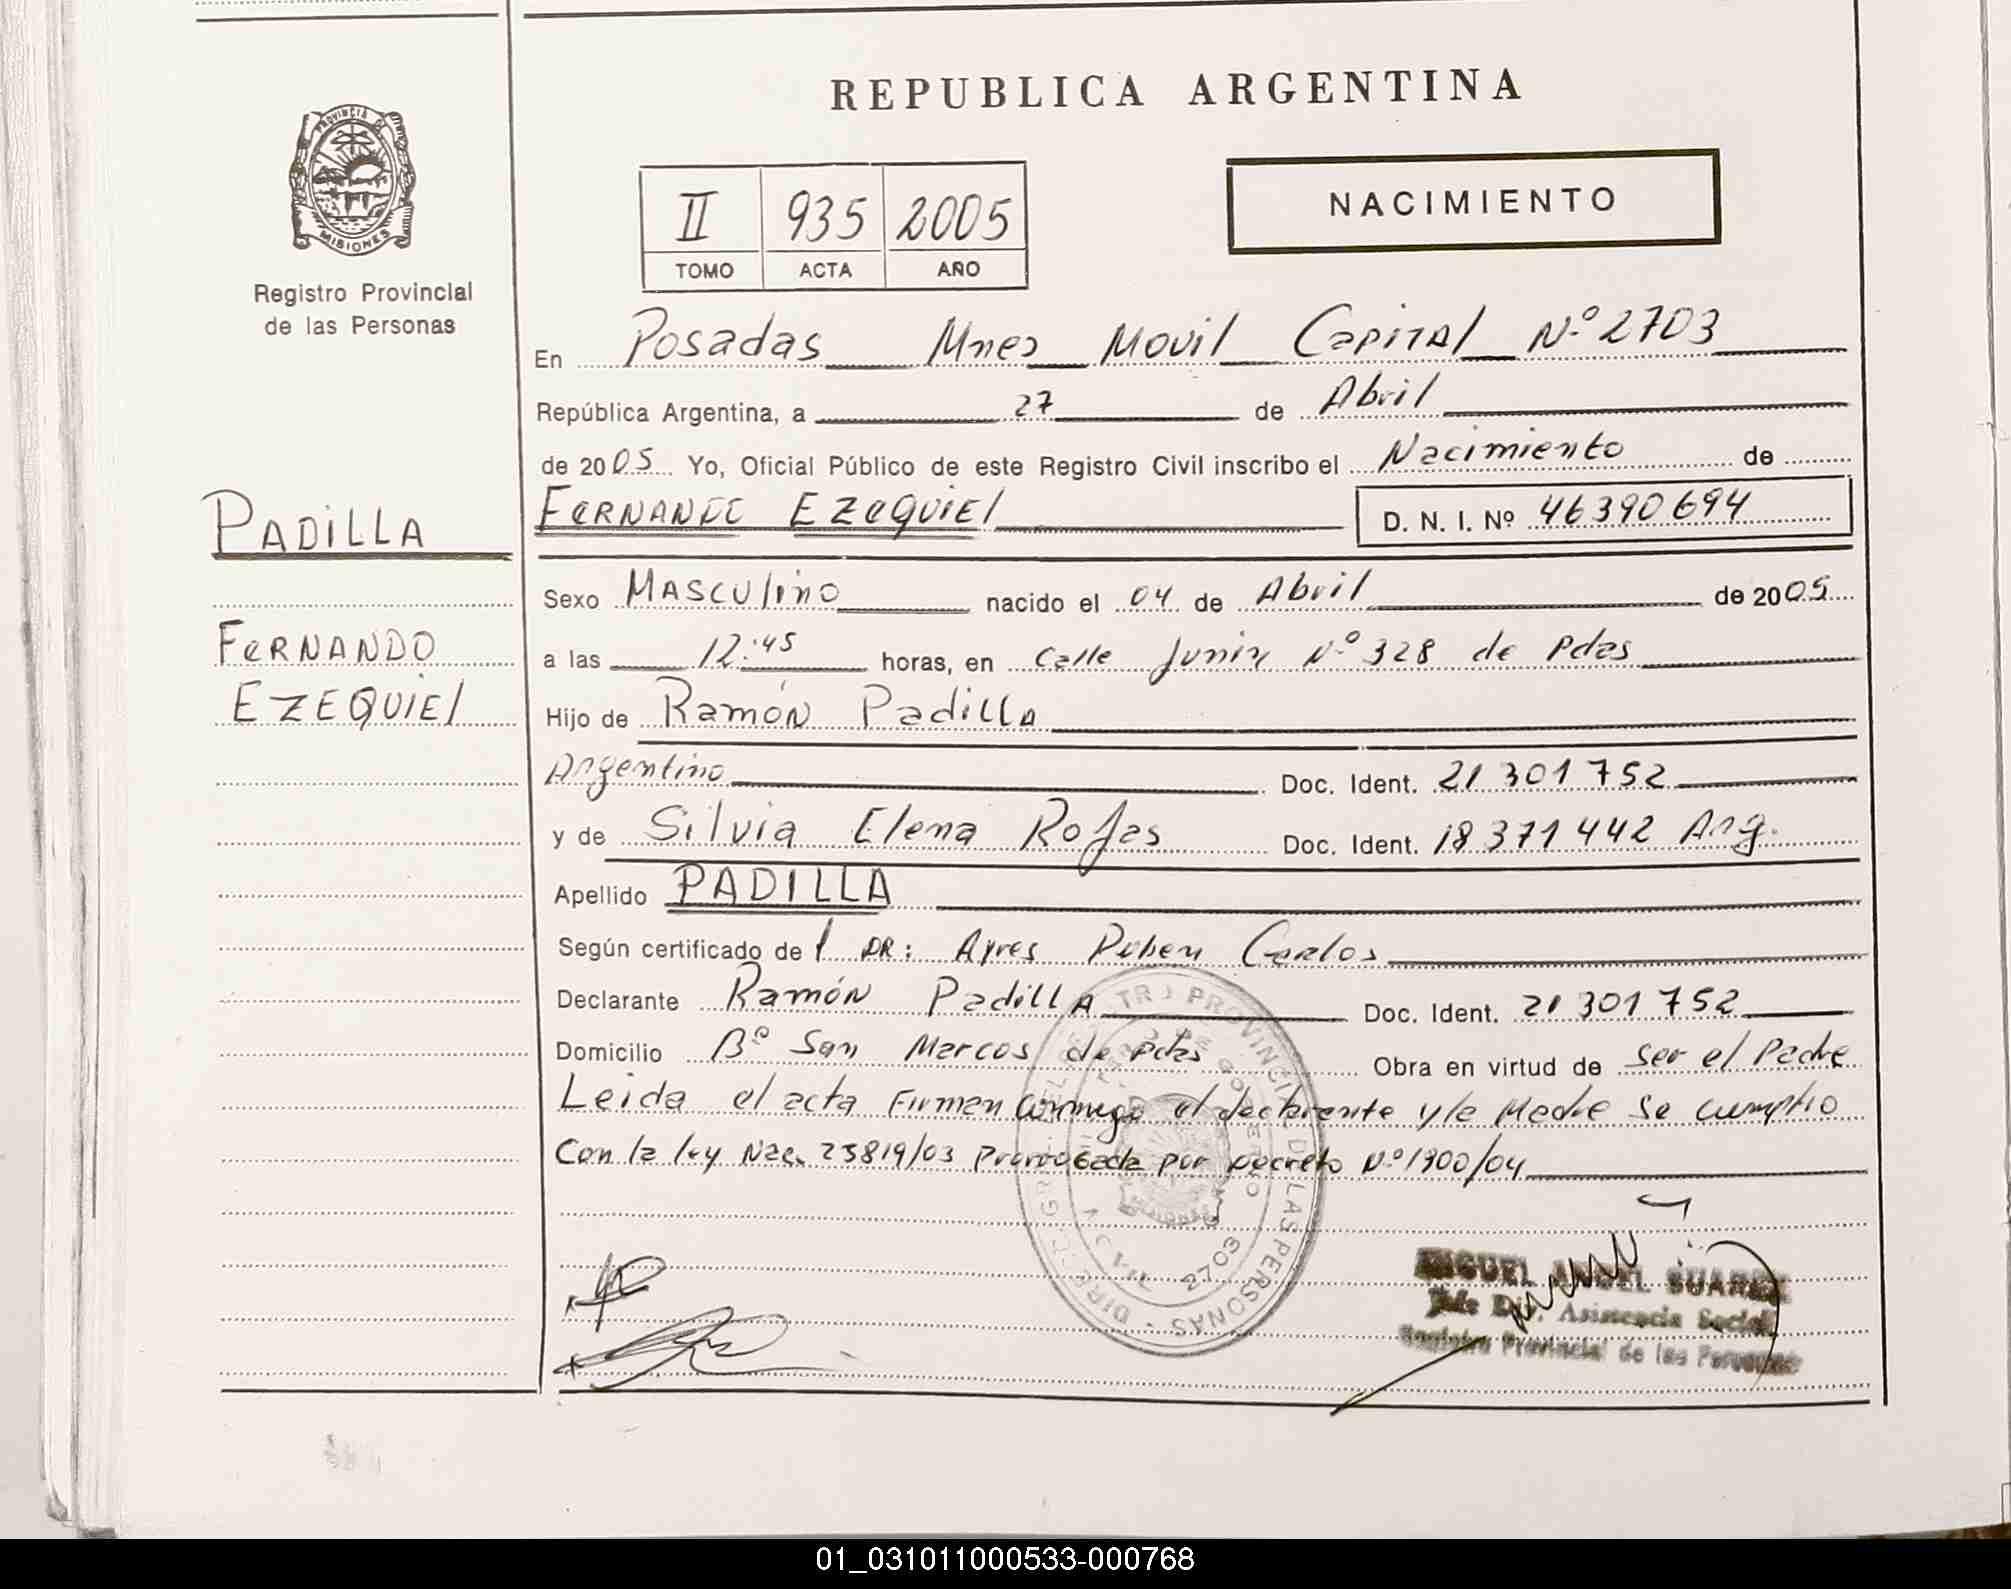 REPUBLICA ARGENTINA
PROVINCIA DE
MISIONES
Registro Provincial
de las Personas
II 935 2005
TOMO ACTA AÑO
NACIMIENTO
En Posadas Mnes Movil Capital Nº 2703
República Argentina, a 27 de Abril
de 2005 Yo, Oficial Público de este Registro Civil inscribo el Nacimiento de
PADILLA
FERNANDO EZEQUIEL D. N. I. Nº 46390694
Sexo MASCULINO nacido el 04 de Abril de 2005
FERNANDO
EZEQUIEL
a las 12:45 horas, en calle Junin Nº 328 de Pdas
Hijo de Ramón Padilla
Argentino Doc. Ident. 21 301 752
y de Silvia Elena Rojas Doc. Ident. 18 371 442 Arg.
Apellido PADILLA
Según certificado de l DR: Ayres Ruben Carlos
Declarante Ramón Padilla Doc. Ident. 21 301 752
Domicilio Bº San Marcos de Pdas Obra en virtud de ser el Padre
Leida el acta Firman conmigo el declarante y la Madre Se cumplio
Con la ley Nac. 25819/03 por Decreto Nº 1300/04
REGISTRO PROVINCIAL DE LAS PERSONAS
2703
MIGUEL ANGEL SUAREZ
Jefe Dir. Asistencia Social
Registro Provincial de las Personas
01_031011000533-000768